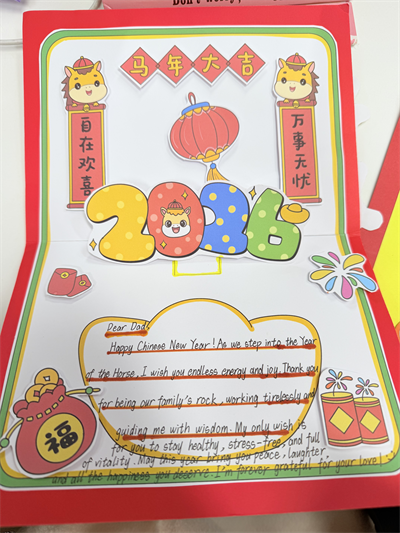 Don't worry,
马年大吉
自在欢喜
万事无忧
2026
Dear Dad,
Happy Chinese New Year! As we step into the Year
of the Horse, I wish you endless energy and joy. Thank you
for being our family's rock, working tirelessly and
guiding me with wisdom. My only wish is
for you to stay healthy, stress-free, and full
of vitality. May this year bring you peace, laughter,
and all the happiness you deserve. I'm forever grateful for your love!
福